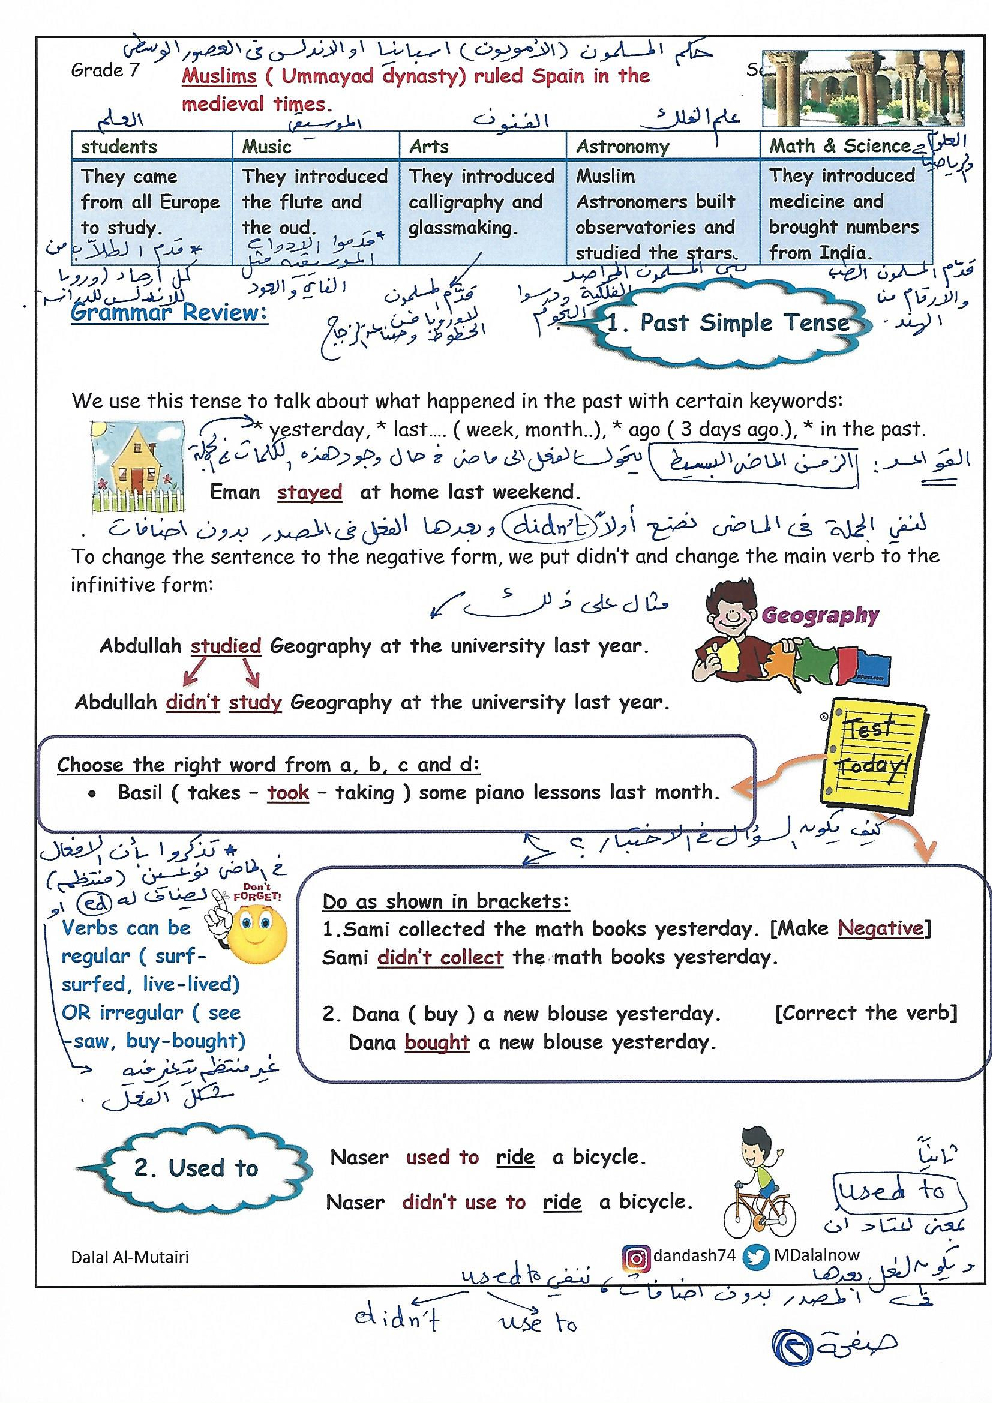 حكم المسلمون (الأمويون) اسبانيا او الاندلس في العصور الوسطى
Grade 7
Muslims ( Ummayad dynasty) ruled Spain in the
medieval times.
العلم الموسيقى الفنون علم الفلك العلوم
students Music Arts Astronomy Math & Science
They came from all Europe to study.
They introduced the flute and the oud.
They introduced calligraphy and glassmaking.
Muslim Astronomers built observatories and studied the stars.
They introduced medicine and brought numbers from India.
* قدم الطلاب من
كل أرجاء اوروبا
للأندلس للدراسة
* قدموا الادوات
الموسيقية مثل
الفلوت والعود
قدم المسلمون
الخطوط
المسلمون المراصد
الفلكية ودرسوا
النجوم
قدم المسلمون الطب
والارقام من
الهند
Grammar Review:
1. Past Simple Tense
We use this tense to talk about what happened in the past with certain keywords:
* yesterday, * last.... ( week, month..), * ago ( 3 days ago.), * in the past.
القواعد: الزمن الماضي البسيط يتحول الفعل الى ماضي في حال وجود هذه الكلمات في الجملة
Eman stayed at home last weekend.
لنفي الجملة في الماضي نضع أولاً didn't وبعدها الفعل في المصدر بدون اضافات .
To change the sentence to the negative form, we put didn't and change the main verb to the
infinitive form:
مثال على ذلك
Geography
Abdullah studied Geography at the university last year.
Abdullah didn't study Geography at the university last year.
Test
Today!
Choose the right word from a, b, c and d:
• Basil ( takes - took - taking ) some piano lessons last month.
كيف يكون السؤال في الاختبار ؟
* تذكروا بأن الافعال
في الماضي نوعين (منتظم)
يضاف له ed او
Don't
FORGET!
Verbs can be
regular ( surf-
surfed, live-lived)
OR irregular ( see
-saw, buy-bought)
غير منتظم يتغير فيه
شكل الفعل .
Do as shown in brackets:
1.Sami collected the math books yesterday. [Make Negative]
Sami didn't collect the math books yesterday.
2. Dana ( buy ) a new blouse yesterday. [Correct the verb]
Dana bought a new blouse yesterday.
2. Used to
Naser used to ride a bicycle.
Naser didn't use to ride a bicycle.
ثانياً
used to
بمعنى اعتاد ان
Dalal Al-Mutairi
dandash74 MDalalnow
ويكون الفعل بعدها
في المصدر بدون اضافات ، ننفي used to
didn't use to
صفحة ٢